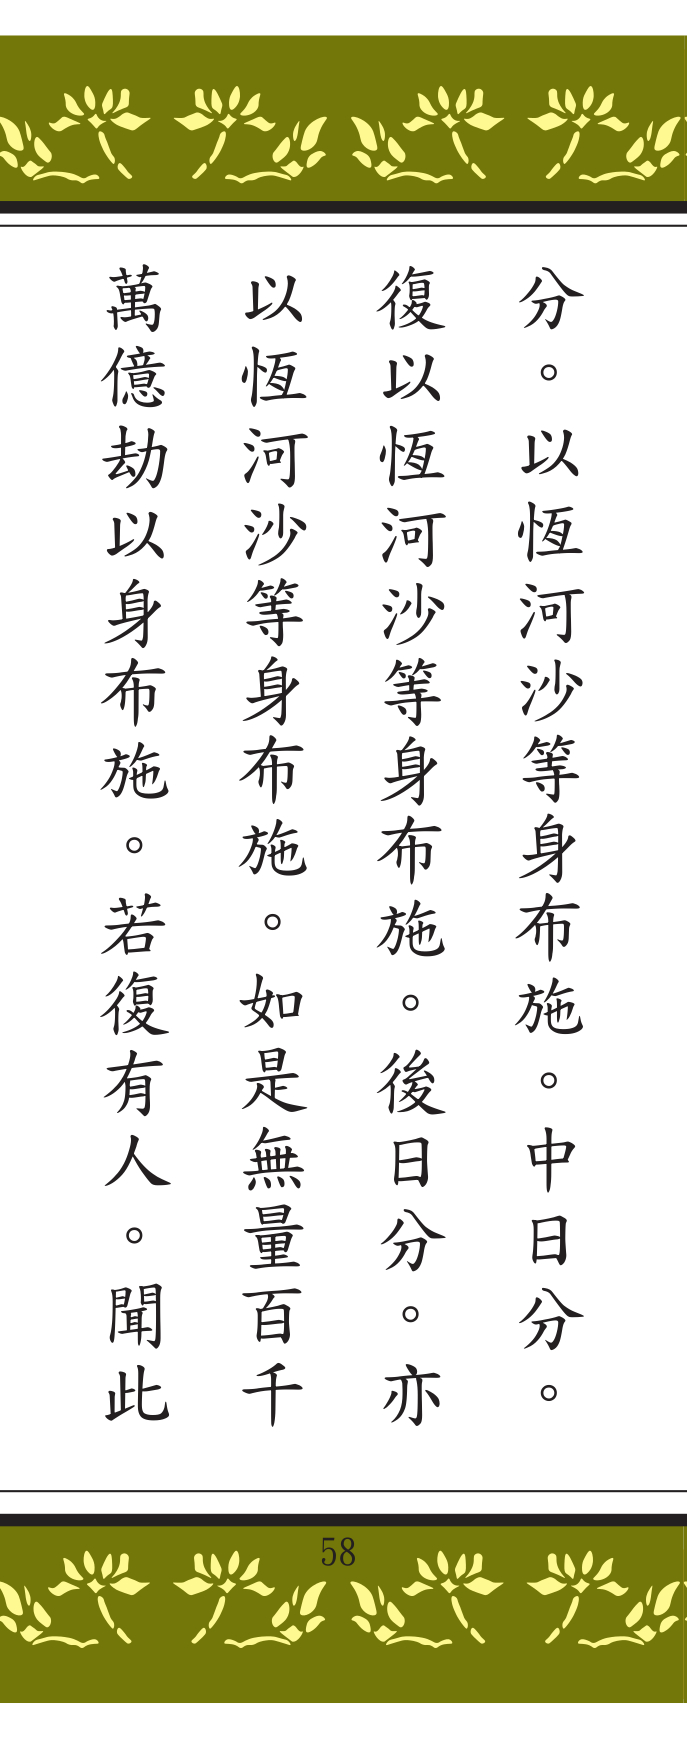 分。以恆河沙等身布施。中日分。
復以恆河沙等身布施。後日分。亦
以恆河沙等身布施。如是無量百千
萬億劫以身布施。若復有人。聞此
58